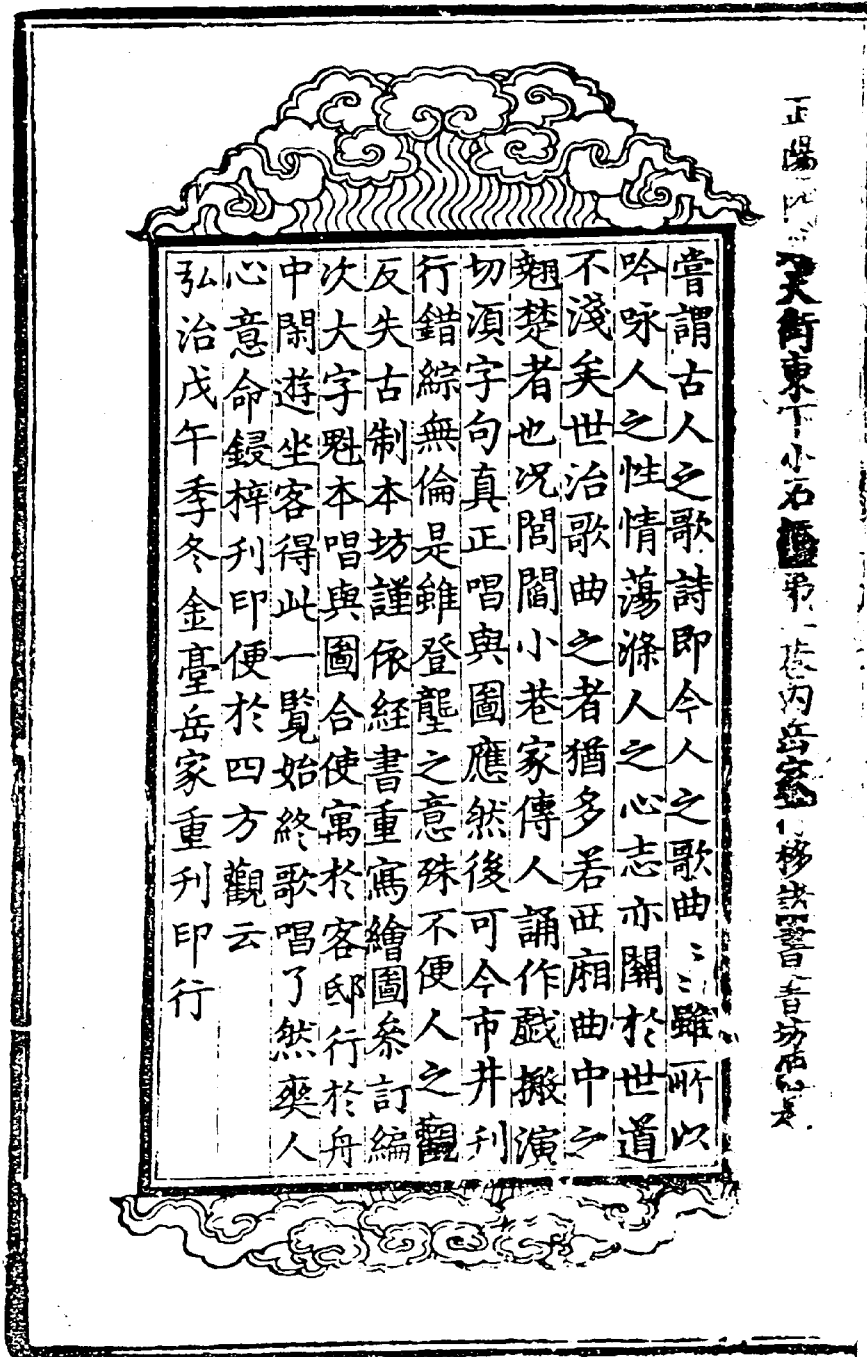 正陽門大街東下小石橋第一巷內岳家行移諸書書坊便是
嘗謂古人之歌詩即今人之歌曲〻〻雖所以
吟咏人之性情蕩滌人之心志亦關於世道
不淺矣世治歌曲之者猶多若西廂曲中之
翹楚者也况閭閻小巷家傳人誦作戲搬演
切須字句真正唱與圖應然後可今市井刋
行錯綜無倫是雖登壟之意殊不便人之觀
反失古制本坊謹依経書重寫繪圖叅訂編
次大字魁本唱與圖合使寓於客邸行於舟
中閑遊坐客得此一覧始終歌唱了然爽人
心意命鋟梓刋印便於四方觀云
弘治戊午季冬金臺岳家重刋印行